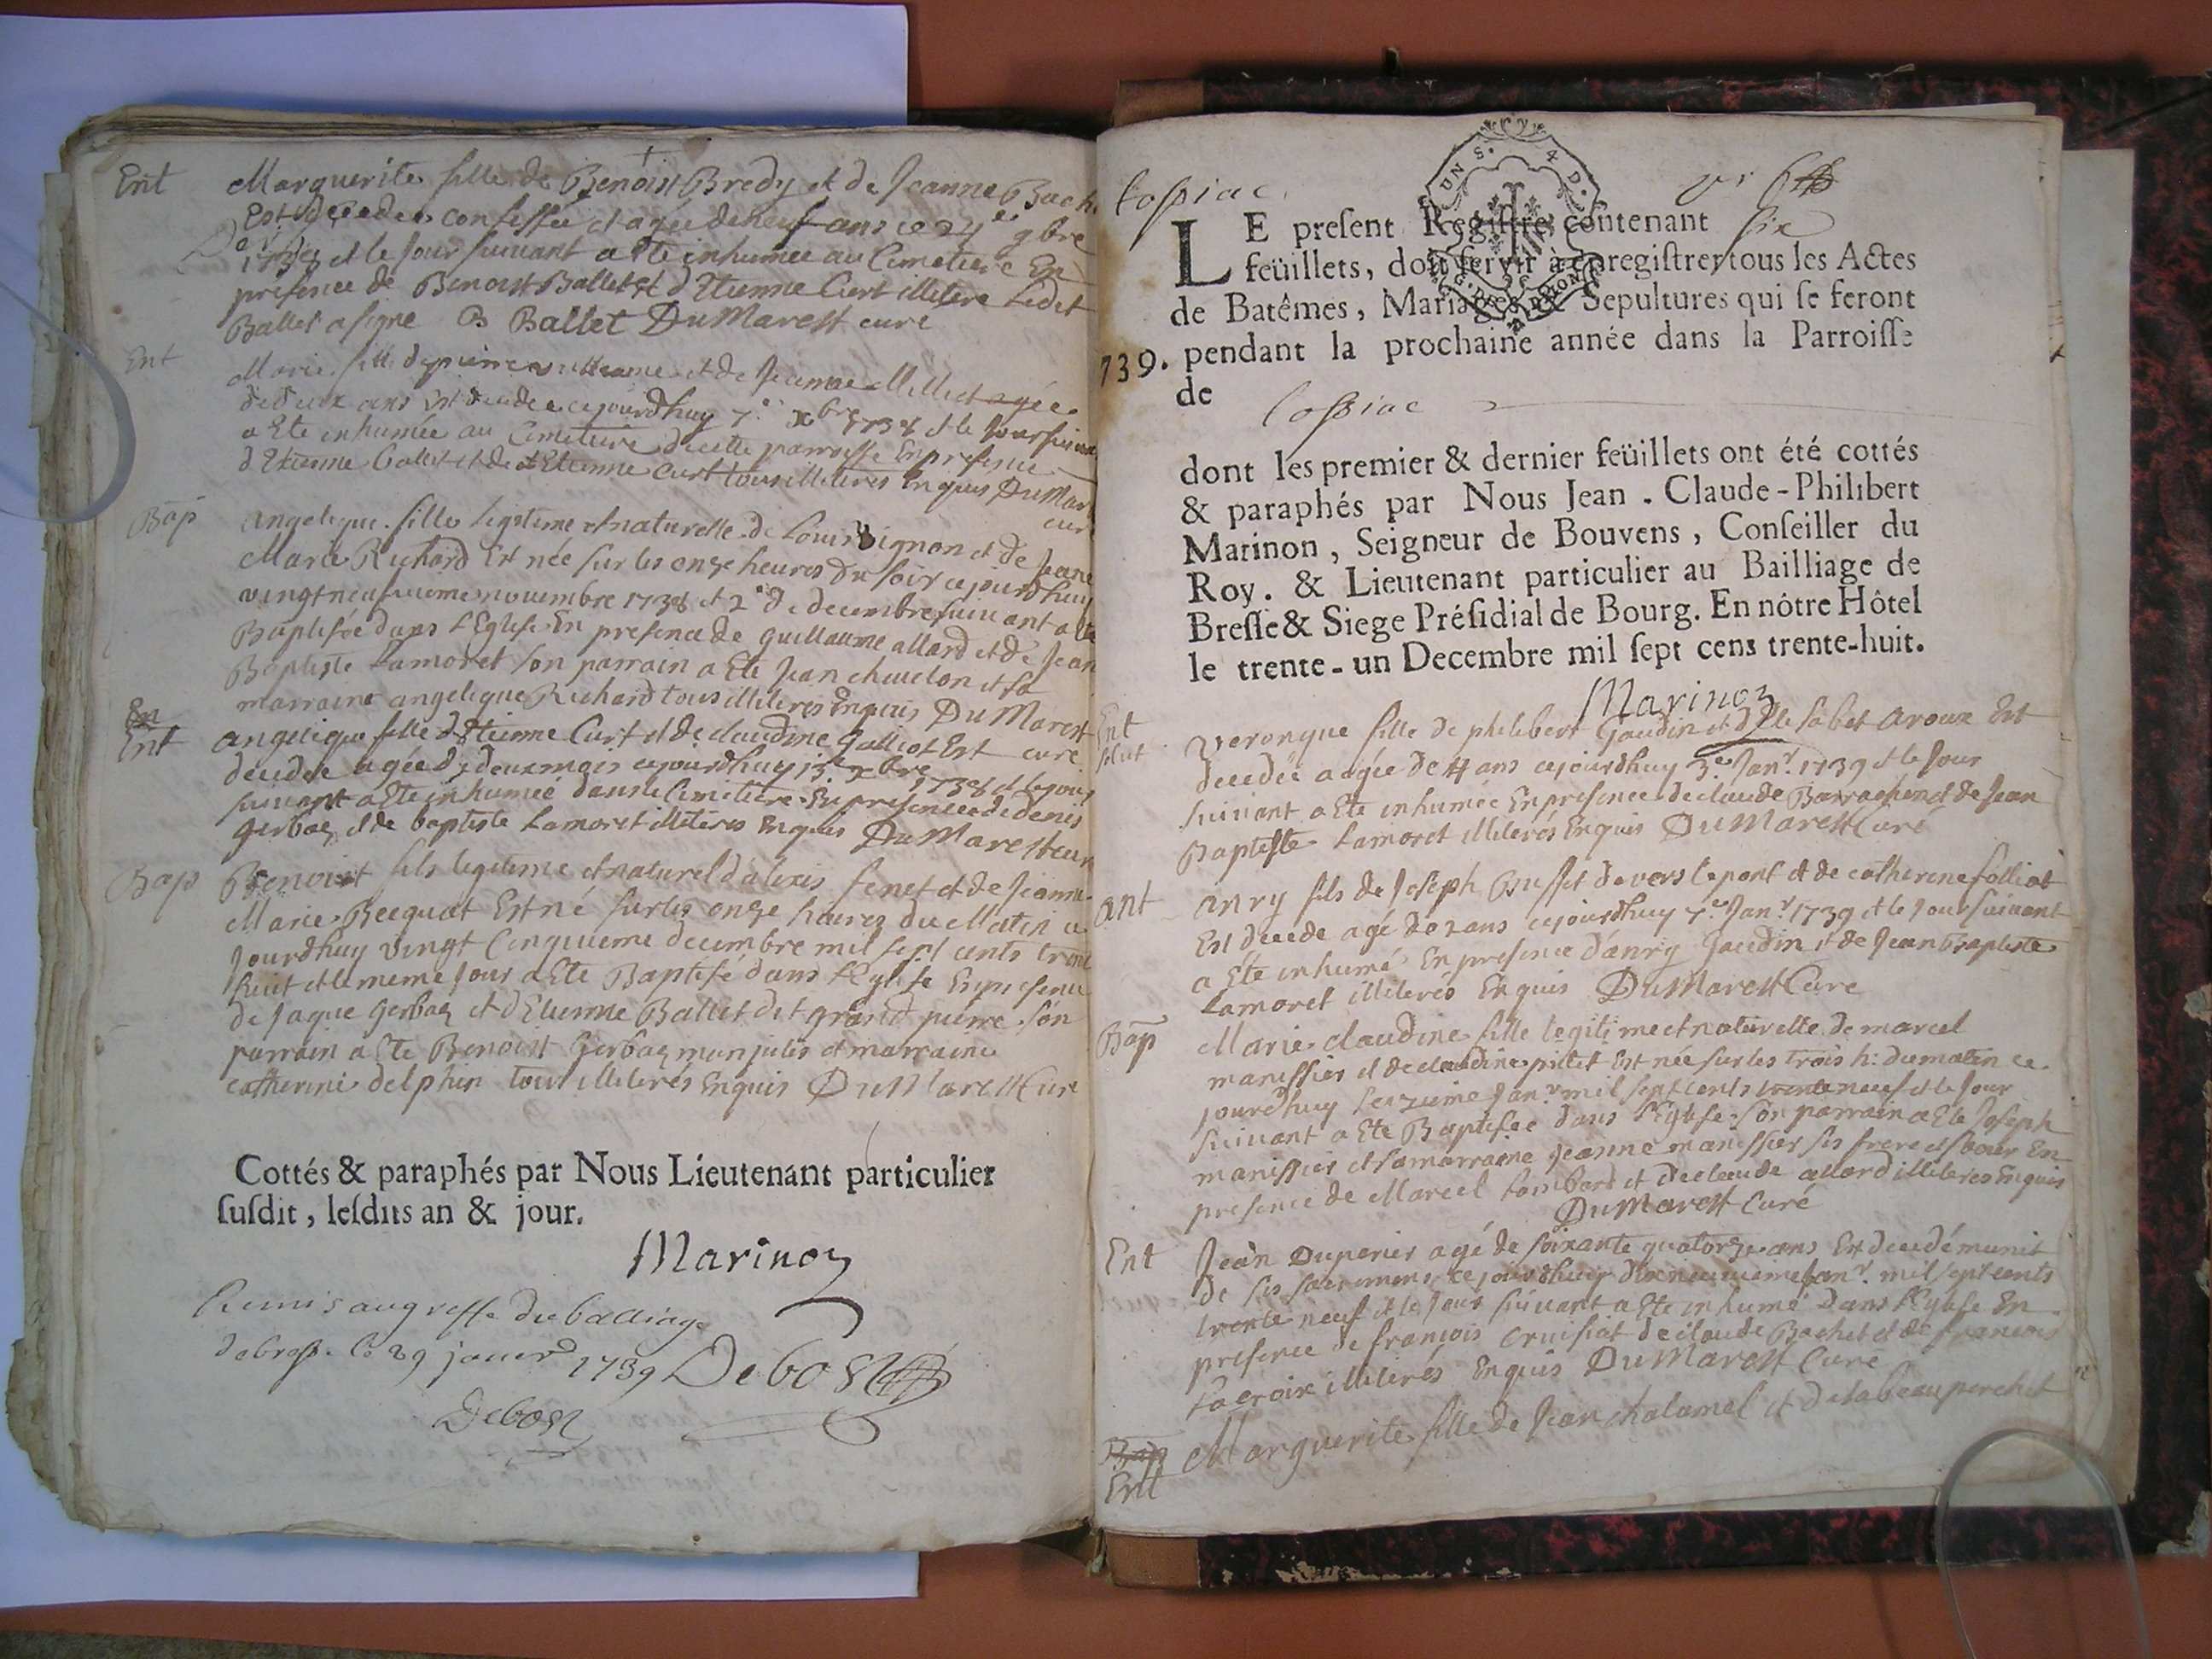 Ent Marguerite fille de Benoist Bredy et de Jeanne Bach
Est decedee confessée et agée de neuf ans ce 24e 9bre
1738 et le jour suivant a Ete inhumée au Cimetiere En
presence de Benoist Ballet et d'Etienne Curt illiteré Ledit
Ballet a signe B Ballet DuMarest curé
Ent Marie fille de pierre et de Jeanne Millet agée
de deux ans Est decedee cejourdhuy 7e xbre 1738 et le jour suivant
a Ete inhumée au Cimetiere de cette parroisse En presence
d'Etienne Ballet et de Etienne Curt tous illiterés Enquis DuMar
cur
Bap Angelique fille legitime et naturelle de Louis Vignon et de Jeane
Marie Richard Est née sur les onze heures du soir cejourdhuy
vingtneufuieme novembre 1738 et 2e de decembre suivant a Ete
Baptisée dans l'Eglise En presence de guillaume allard et de Jean
Baptiste Lamoret son parrain a Ete Jean chevelon et sa
marraine angelique Richard tous illiterés Enquis DuMarest
curé
En
Ent angelique fille d'Etienne Curt et de claudine galliot Est
decedee agée de deux mois cejourdhuy xbre 1738 et le jour
suivant a Ete inhumée dans le Cimetiere En presence de denis
gerbaz et de baptiste Lamoret illiterés Enquis DuMarest cur
Bap Benoist fils legitime et naturel d'alexis fenet et de Jeanne
Marie Becquat Est né sur les onze heures du Matin ce
jourdhuy vingt Cinquieme decembre mil sept cents trente
huit et le meme jour a Ete Baptisé dans l'Eglise En presence
de Jaque gerbaz et d'Etienne Ballet dit grand pierre son
parrain a Ete Benoist Gerbaz et marraine
catherine delphin tous illiterés Enquis DuMarest Cur
Cottés & paraphés par Nous Lieutenant particulier
susdit, lesdits an & jour.
Marinon
Remis au greffe du balliage
de bresse le 29 janvier 1739 Debost
Debost
Cossiac
LE present Registre, contenant six
feüillets, doit servir à enregistrer tous les Actes
de Batêmes, Mariages & Sepultures qui se feront
1739. pendant la prochaine année dans la Parroisse
de Cossiac
dont les premier & dernier feüillets ont été cottés
& paraphés par Nous Jean - Claude - Philibert
Marinon, Seigneur de Bouvens, Conseiller du
Roy. & Lieutenant particulier au Bailliage de
Bresse & Siege Présidial de Bourg. En nôtre Hôtel
le trente - un Decembre mil sept cens trente-huit.
Marinon
Ent Veronque fille de philibert Gaudin et d'Elisabet aroux Est
decedée agée de 4 ans cejourdhuy 3e Janr. 1739 et le jour
suivant a Ete inhumée En presence de claude Barrachin et de Jean
Baptiste Lamoret illiterés Enquis DuMarest Curé
ant anry fils de Joseph Buffet devers le pont et de catherine folliat
Est decede agé de 2 ans cejourdhuy 7e Janr 1739 et le jour suivant
a Ete inhumé En presence d'anry Gaudin et de Jean Baptiste
Lamoret illiterés Enquis DuMarest Cure
Bap Marie claudine fille legitime et naturelle de marcel
manissier et de claudine pillet Est née sur les trois h: du matin ce
jourdhuy Janr mil sept cents trente neuf et le jour
suivant a Ete Baptisée dans l'Eglise son parrain a Ete Joseph
manissier et sa marraine Jeanne manissier ses frere et soeur En
presence de Marcel Lombard et de claude allard illiteres Enquis
DuMarest Curé
Ent Jean Duperier agé de soixante quatorze ans Est decedé munit
de ses sacremens cejourdhuy dixneuvieme Janr. mil sept cents
trente neuf et le jour suivant a Ete inhumé dans l'Eglise En
presence de francois Cruisiat de claude Bachet et de francois
Lacroix illiterés Enquis DuMarest Curé
Bap Marguerite fille de Jean chalamel et d'elabeau perchet
Ent